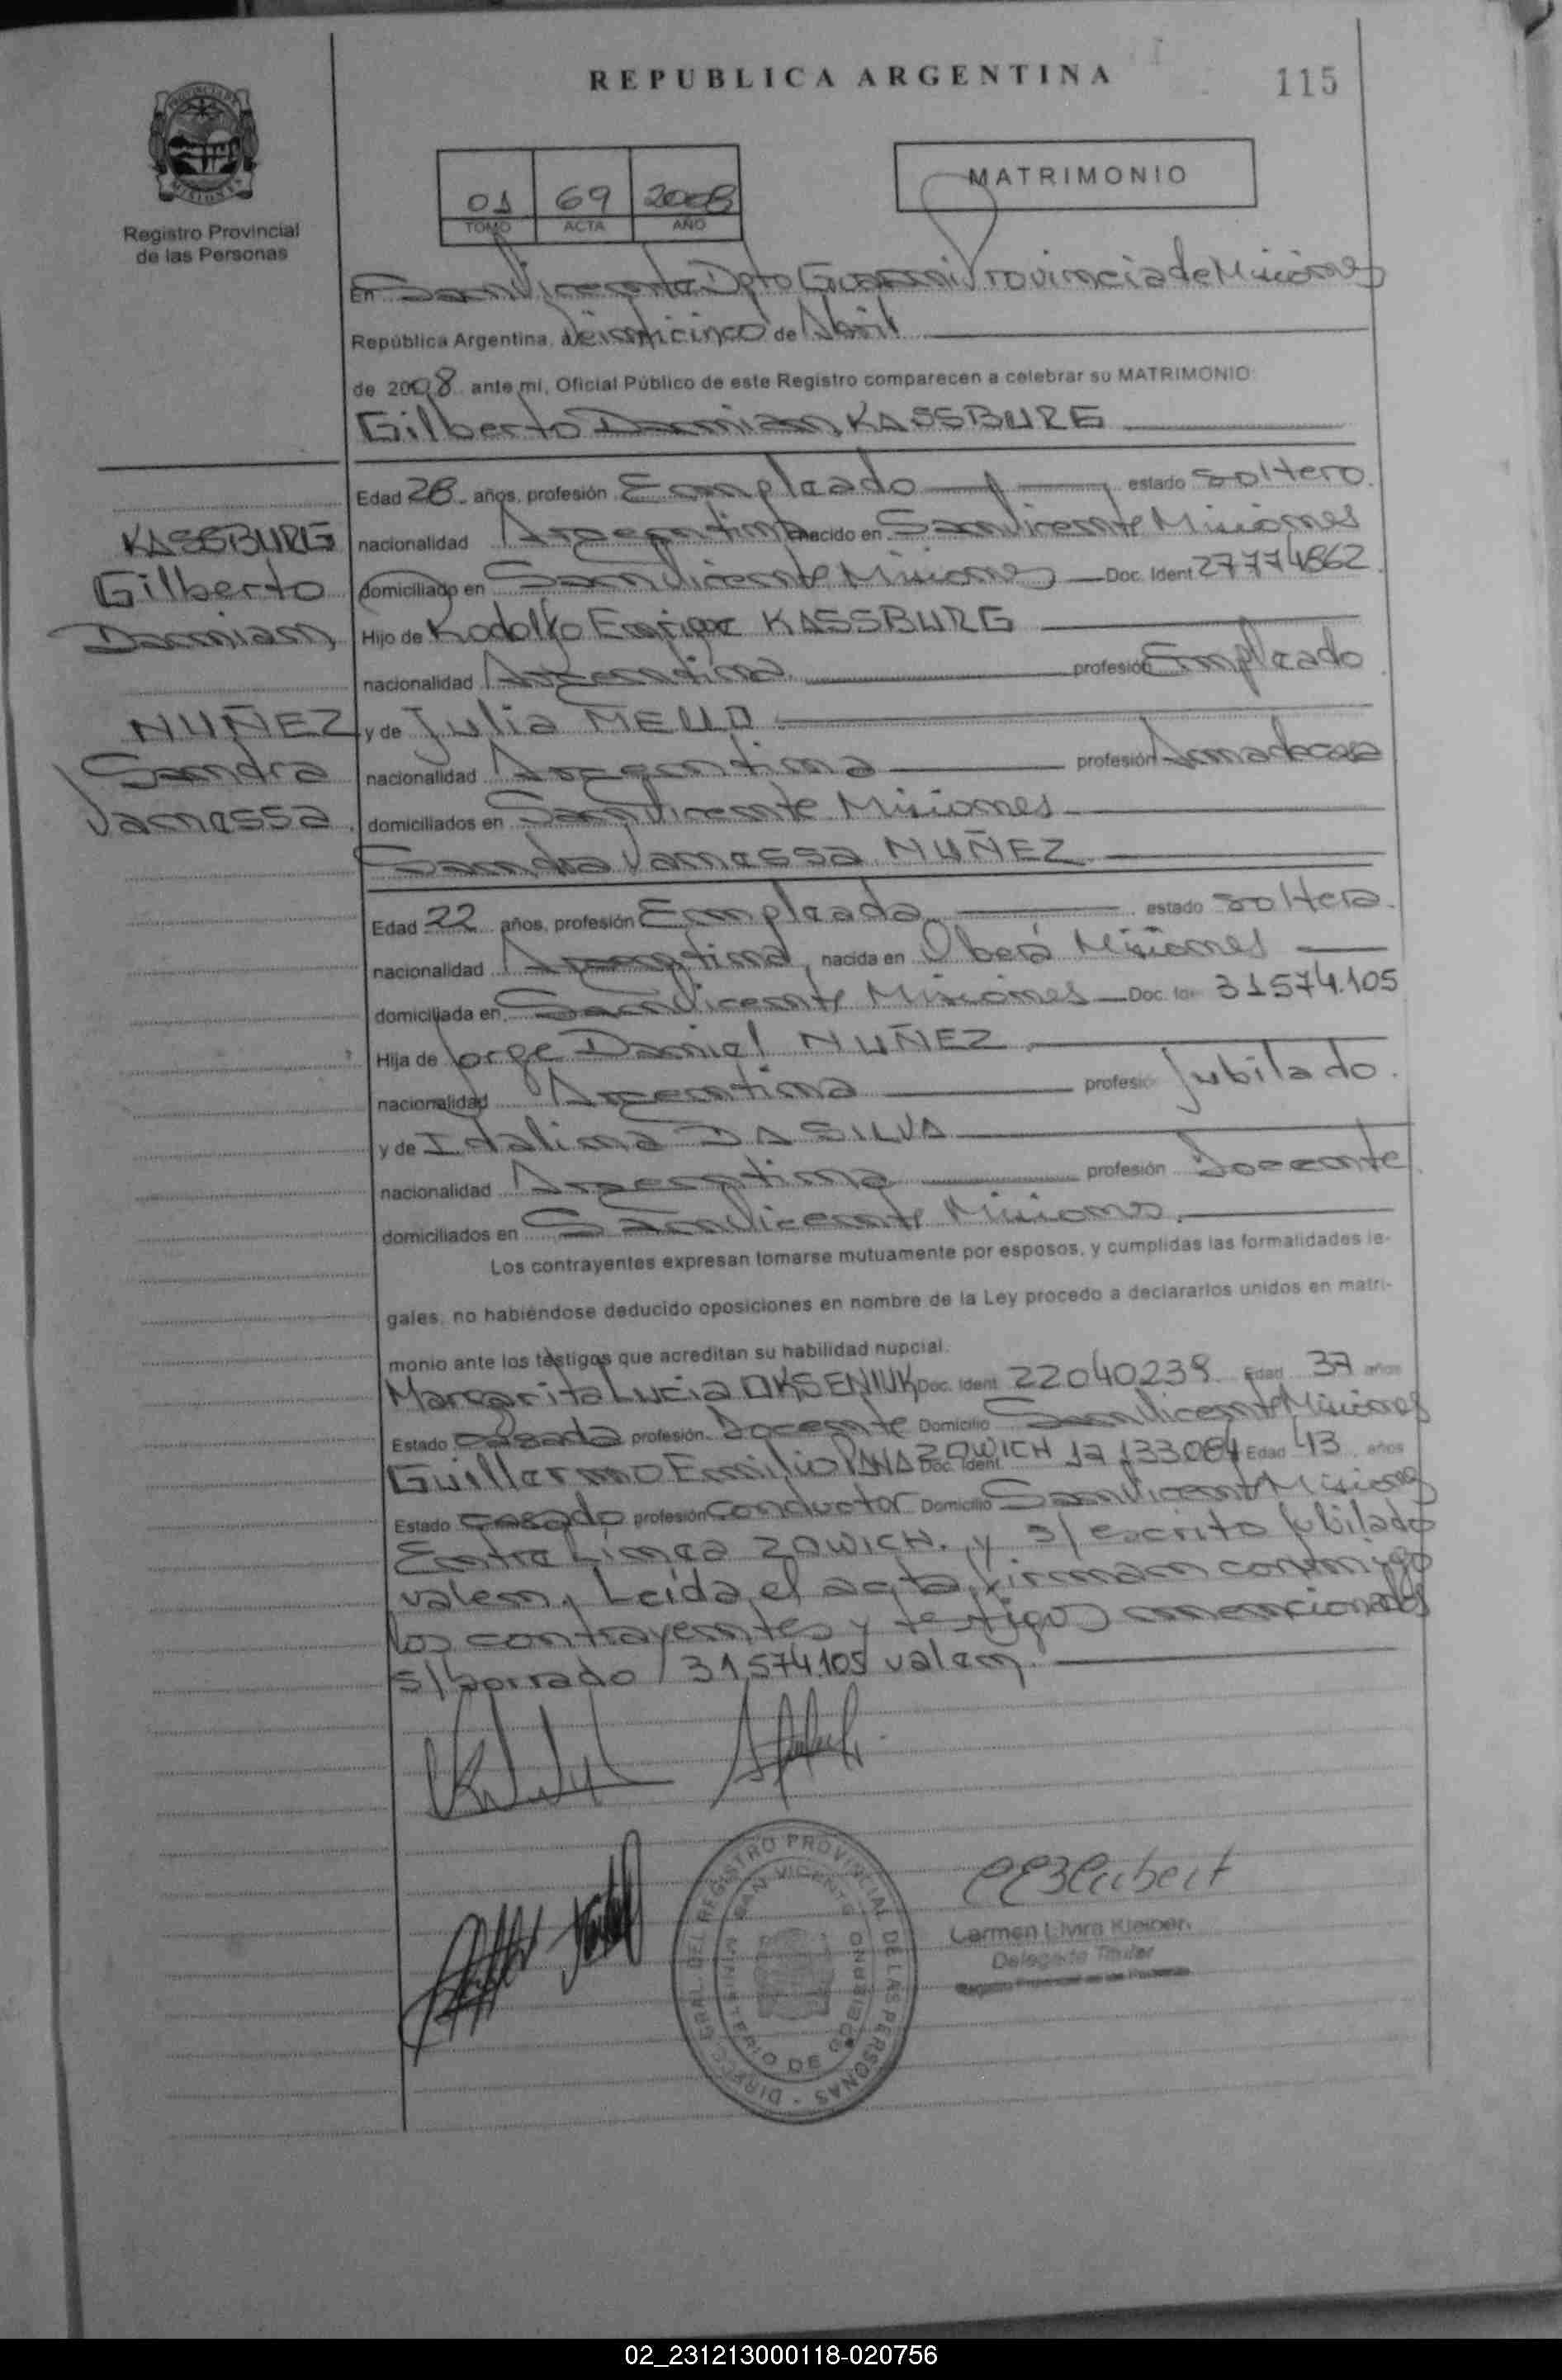 REPUBLICA ARGENTINA
115
MATRIMONIO
01 69 2008
TOMO ACTA AÑO
Registro Provincial
de las Personas
En San Vicente Dpto Guarani Provincia de Misiones
República Argentina, a Veinticinco de Abril
de 2008 ante mi, Oficial Público de este Registro comparecen a celebrar su MATRIMONIO:
Gilberto Damian KASSBURG
Edad 28 años, profesión Empleado estado soltero
nacionalidad Argentina nacido en San Vicente Misiones
domiciliado en San Vicente Misiones Doc. Ident 27774862
Hijo de Rodolfo Enrique KASSBURG
nacionalidad Argentina profesión Empleado
y de Julia MELLO
nacionalidad Argentina profesión Ama de casa
domiciliados en San Vicente Misiones
KASSBURG
Gilberto
Damian
NUÑEZ
Sandra
Vanessa
Sandra Vanessa NUÑEZ
Edad 22 años, profesión Empleada estado soltera
nacionalidad Argentina, nacida en Oberá Misiones
domiciliada en San Vicente Misiones Doc. 31574.105
Hija de Jorge Daniel NUÑEZ
nacionalidad Argentina profesión Jubilado
y de Idalina DA SILVA
nacionalidad Argentina profesión Docente
domiciliados en San Vicente Misiones
Los contrayentes expresan tomarse mutuamente por esposos, y cumplidas las formalidades le-
gales, no habiéndose deducido oposiciones en nombre de la Ley procedo a declararlos unidos en matri-
monio ante los testigos que acreditan su habilidad nupcial.
Margarita Lucia OKSENIUK Doc. Ident 22040239 Edad 37 años
Estado casada profesión Docente Domicilio San Vicente Misiones
Guillermo Emilio ZOWICH Doc. Ident. 17.133.084 Edad 43 años
Estado casado profesión conductor Domicilio San Vicente Misiones
Entre Línea ZOWICH. y s/ escrito Jubilado
valen, Leída el acta, firman conmigo
los contrayentes y testigos mencionados
s/ borrado / 31574.105 valen.
Carmen Elvira Kleiber
Delegada Titular
Registro Provincial de las Personas
DIRECC. GRAL. DEL REGISTRO PROVINCIAL DE LAS PERSONAS
SAN VICENTE
MINISTERIO DE GOBIERNO
02_231213000118-020756